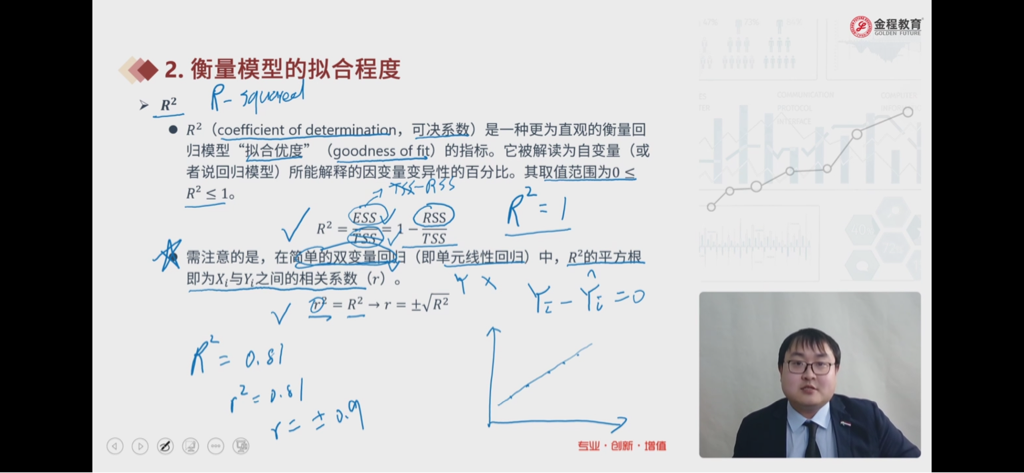 金程教育
GOLDEN FUTURE
2. 衡量模型的拟合程度
➢ R² R-squared
● R²（coefficient of determination，可决系数）是一种更为直观的衡量回
归模型“拟合优度”（goodness of fit）的指标。它被解读为自变量（或
者说回归模型）所能解释的因变量变异性的百分比。其取值范围为0 ≤
R² ≤ 1。
TSS-RSS
R² = ESS/TSS = 1 − RSS/TSS
R² = 1
需注意的是，在简单的双变量回归（即单元线性回归）中，R²的平方根
即为Xᵢ与Yᵢ之间的相关系数（r）。
Y X
r² = R² → r = ±√R²
Yᵢ − Ŷᵢ = 0
R² = 0.81
r² = 0.81
r = ± 0.9
专业·创新·增值